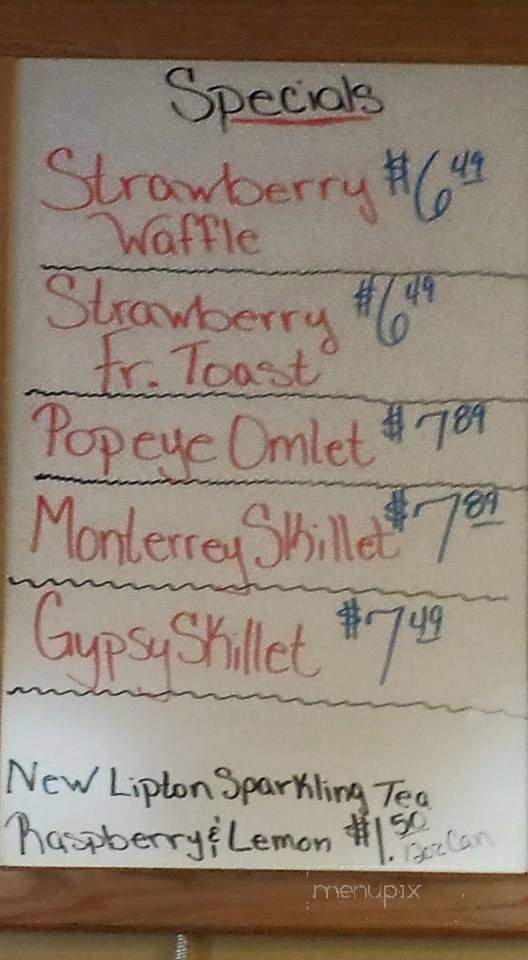 Specials
Strawberry $6 49
Waffle
Strawberry $6 49
Fr. Toast
Popeye Omlet $7 89
Monterrey Skillet $7 89
Gypsy Skillet $7 49
New Lipton Sparkling Tea
Raspberry & Lemon $1.50 12oz Can
menupix